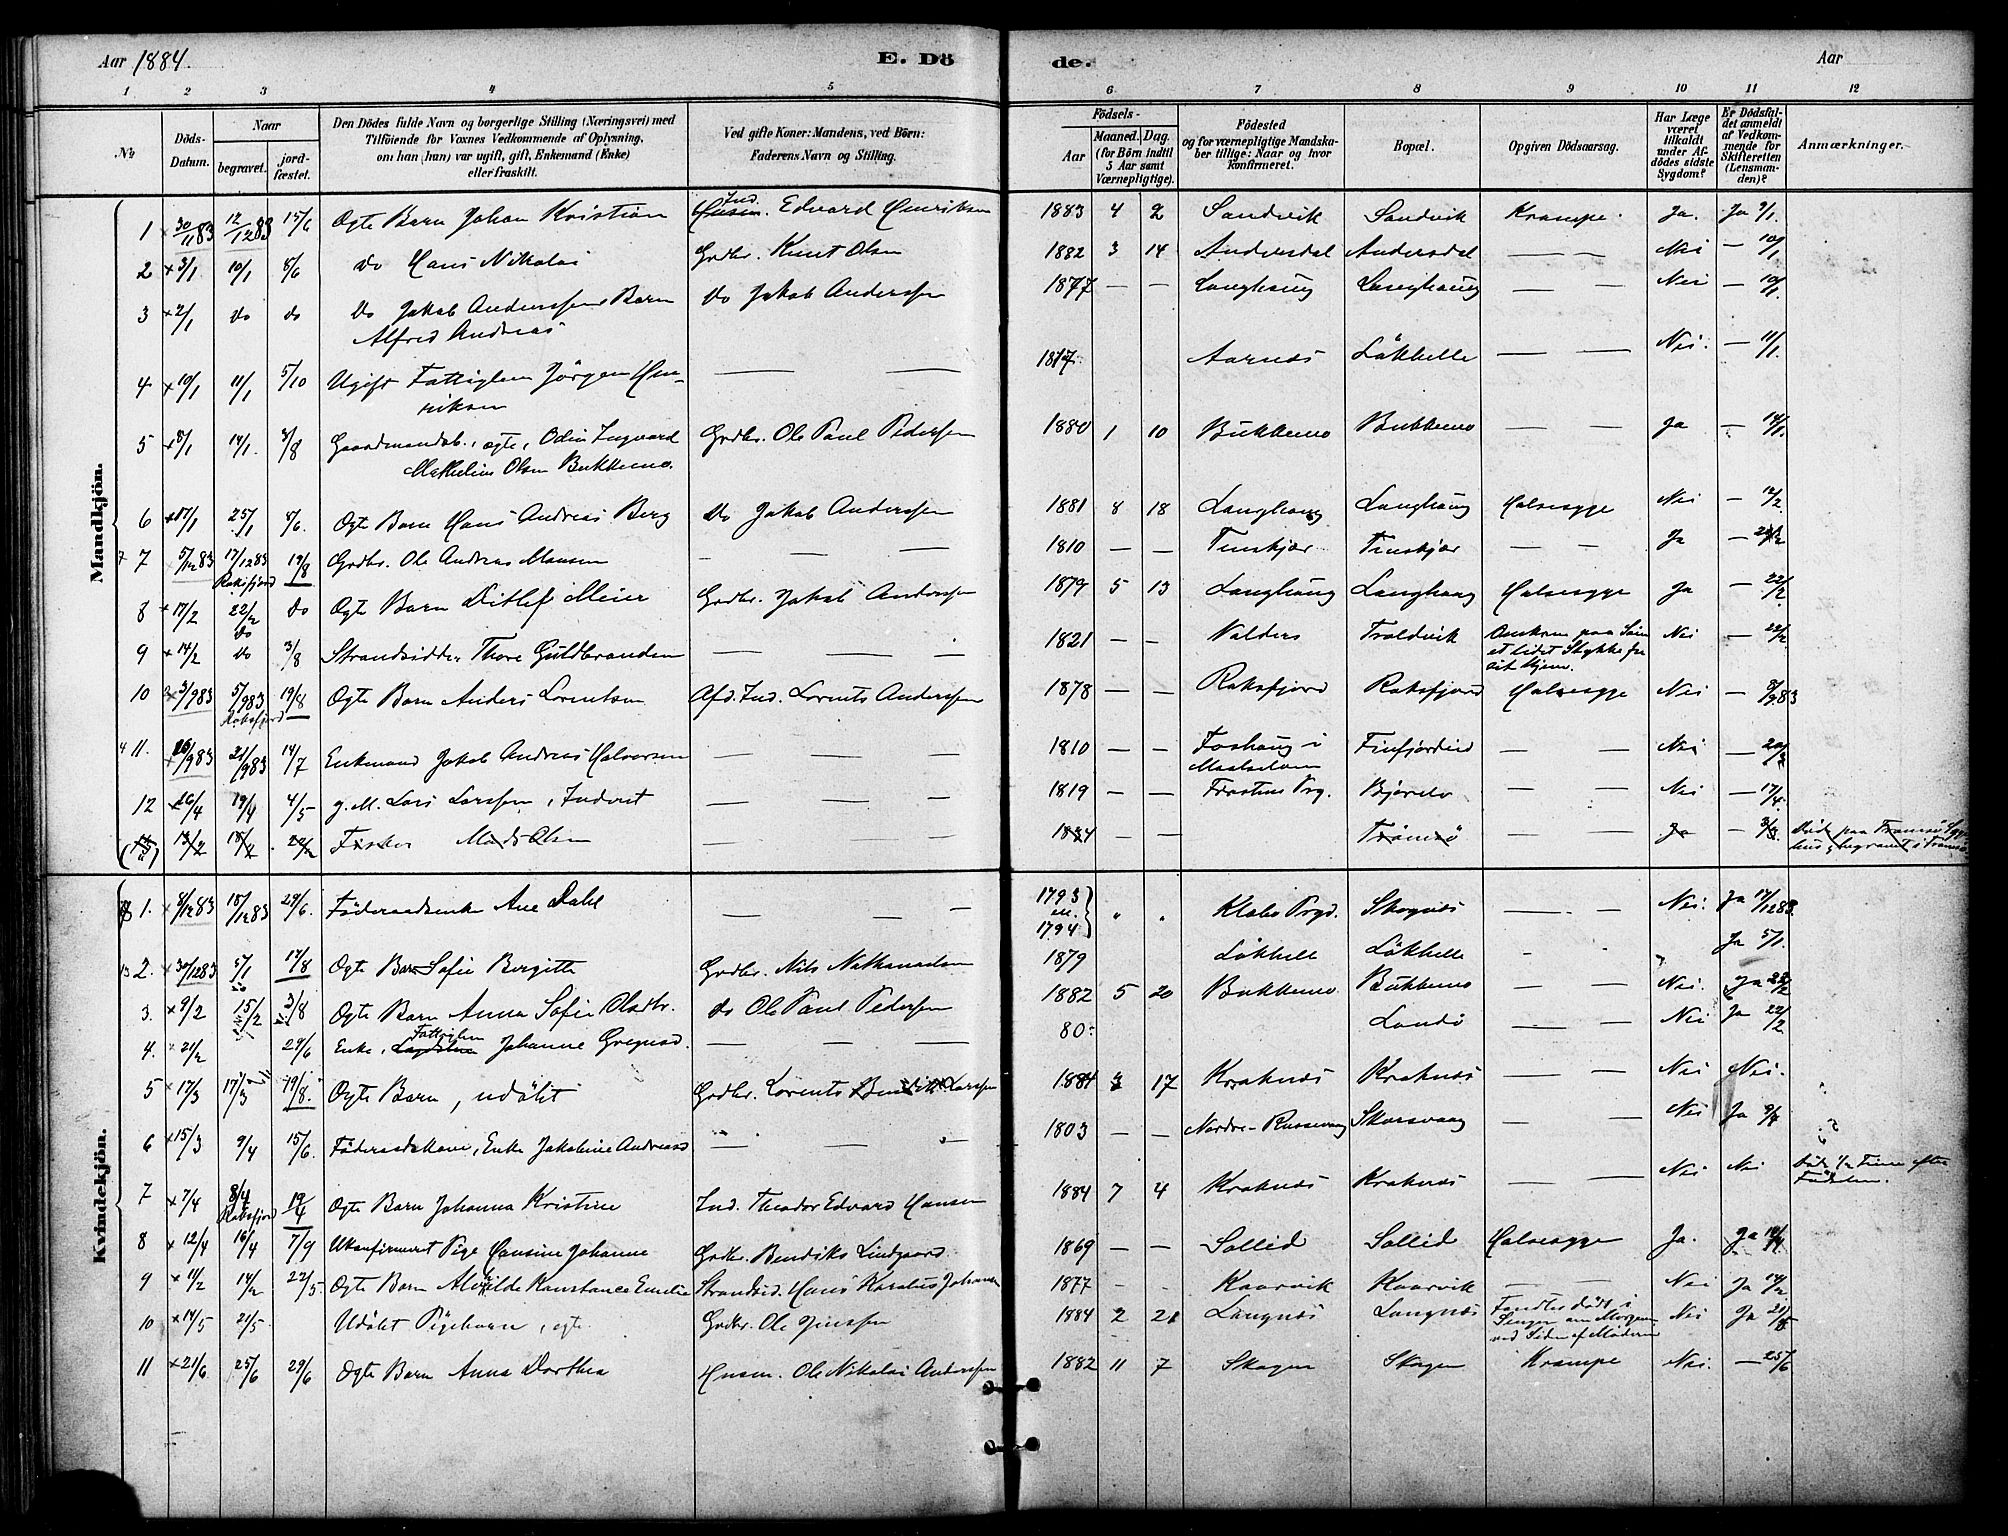 Aar 1884.
E. Dö
de.
Aar
1 2 3 4 5 6 7 8 9 10 11 12
No
Döds-Datum.
Naar
begravet.
jord-fæstet.
Den Dödes fulde Navn og borgerlige Stilling (Næringsvei) med
Tilföiende for Voxnes Vedkommende af Oplysning,
om han (hun) var ugift, gift, Enkemand (Enke)
eller fraskilt.
Ved gifte Koner: Mandens, ved Börn:
Faderens Navn og Stilling.
Födsels-
Aar
Maaned. Dag.
(for Börn indtil
5 Aar samt
Værnepligtige).
Födested
og for værnepligtige Mandska-
ber tillige: Naar og hvor
konfirmeret.
Bopæl.
Opgiven Dödsaarsag.
Har Læge
været
tilkaldt
under Af-
dödes sidste
Sygdom?
Er Dödsfal-
det anmeldt
af Vedkom-
mende for
Skifteretten
(Lensman-
den)?
Anmærkninger.
Mandkjön.
1 30/11 83 12/12 83 15/6 Ægte Barn Johan Kristian Ind. Edvard Henriksen 1883 4 2 Sandvik Sandvik Krampe. Ja. Ja 9/1.
2 3/1 10/1 8/6 do Hans Nikolai Grdbr. Knut Olsen 1882 3 14 Andersdal Andersdal — — Nei — 10/1
3 2/1 do do Do Jakob Anderssens Barn do Jakob Anderssen 1877 — — Langhaug Langhaug — — Nei — 10/1.
Alfred Andreas
4 10/1 11/1 5/10 Ugift Fattiglem Jörgen Hen- — — 1817 Aarnæs Lökhelle — — Nei. — 11/1.
riksen
5 8/1 14/1. 3/8 Gaardmandsb., ægte, Odin Ingvard Grdbr. Ole Paul Pedersen 1880 1 10 Bukkemo Bukkemo — — Ja — 14/1.
Mathelius Olsen Bukkemo.
6 17/1 25/1 8/6. Ægte Barn Hans Andreas Berg do Jakob Anderssen 1881 8 18 Langhaug Langhaug Halsesyge Nei — 12/2
7 5/12 83 17/12 83 19/8 Grdbr. Ole Andreas Monsen — — — 1810 — — Finskjær Finskjær — — Ja — 22/2
Raksfjord
8 17/2 22/2 do Ægte Barn Ditlef Meier Grdbr. Jakob Anderssen 1879 5 13 Langhaug Langhaug Halsesyge Ja — 22/2
do
9 14/2 do 3/8 Strandsidder Thore Guldbrandsen — — — 1821 — — Valders Troldvik Omkom paa Söen Nei — 22/2
et lidet Stykke fra
sit Hjem.
10 3/9 83 5/9 83 19/8 Ægte Barn Anders Lorentsen Afd. Ind. Lorents Anderssen 1878 — — Raksfjord Raksfjord Halsesyge Nei — 8/9 83
Raksfjord
11. 21/9 83 14/7 Enkemand Jakob Andreas Halvorsen — — — 1810 — — Foshaug i Finfjordeid — — Nei — 20/2
Maalselven
12 26/4 19/4 4/5 g. M. Lars Larssen, Inderst — — — 1819 — — Frostens Prg. Bjørelv — — Nei — 17/4.
(13) 13/2 18/2 Fisker Mads Olsen — — — — — Tromsö Ja — 3/3. Döde paa Tromsö Syge-
hus, begravet i Tromsö
Kvindekjön.
1. 8/12 83 18/12 83 29/6. Föderaadsenke Ane Dahl — — — 1793 el. 1794 " " Klæbo Prgd. Skognæs — — Nei. Ja 17/12 83.
2. 30/12 83 5/1 17/8 Ægte Barn Sofie Bergitte Grdbr. Nils Nathanaelsen 1879 Lökhelle Lökhelle Ja 5/1.
3. 9/2 15/2 3/8 Ægte Barn Anna Sofie Olsdtr. do Ole Paul Pedersen 1882 5 20 Bukkemo Bukkemo — — Nei. Ja 22/2
4. 21/2 29/6 Enke, Fattiglem Johanne Gregersd. — — — 80: Landö — — Nei Ja 22/2
5 17/3 17/3 19/8. Ægte Barn, udöbt Grdbr. Lorents Larssen 1884 3 17 Kraknæs Kraknæs — — Nei Nei.
6 15/3 9/4 15/6. Föderaadskone, Enke Jakobine Andreasd — — — 1803 — — Nordre-Russevaag Skarsvaag — — Nei Ja 9/4
7 7/4 8/4 19/4 Ægte Barn Johanna Kristine Ind. Theodor Edvard Hansen 1884 7 4 Kraknæs Kraknæs — — Nei Nei Döde 1/2 Time efter
Raksfjord Födselen.
8 12/4 16/4 7/9 Ukonfirmeret Pige Hansine Johanne Grdbr. Bendiks Lindgaard 1869 — — Sollid Sollid Halsesyge Ja. Ja 14/4
9 11/2 14/2 22/5. Ægte Barn Alvilde Konstance Emilie Strandsid. Hans Karelius Johansen 1877 - - Kaarvik Kaarvik — — Nei Ja 14/2
10 14/5 21/5. Udöbt Pigebarn, ægte. Grdbr. Ole Jenssen 1884 2 21 Langnæs Langnæs Fandtes död i Nei Ja 21/5
Sengen om Morgenen
ved Siden af Moderen
11 21/6 25/6 29/6 Ægte Barn Anna Dorthea Husm. Ole Nikolai Anderssen 1882 11 7 Skogen Skogen Krampe Nei. — 25/6